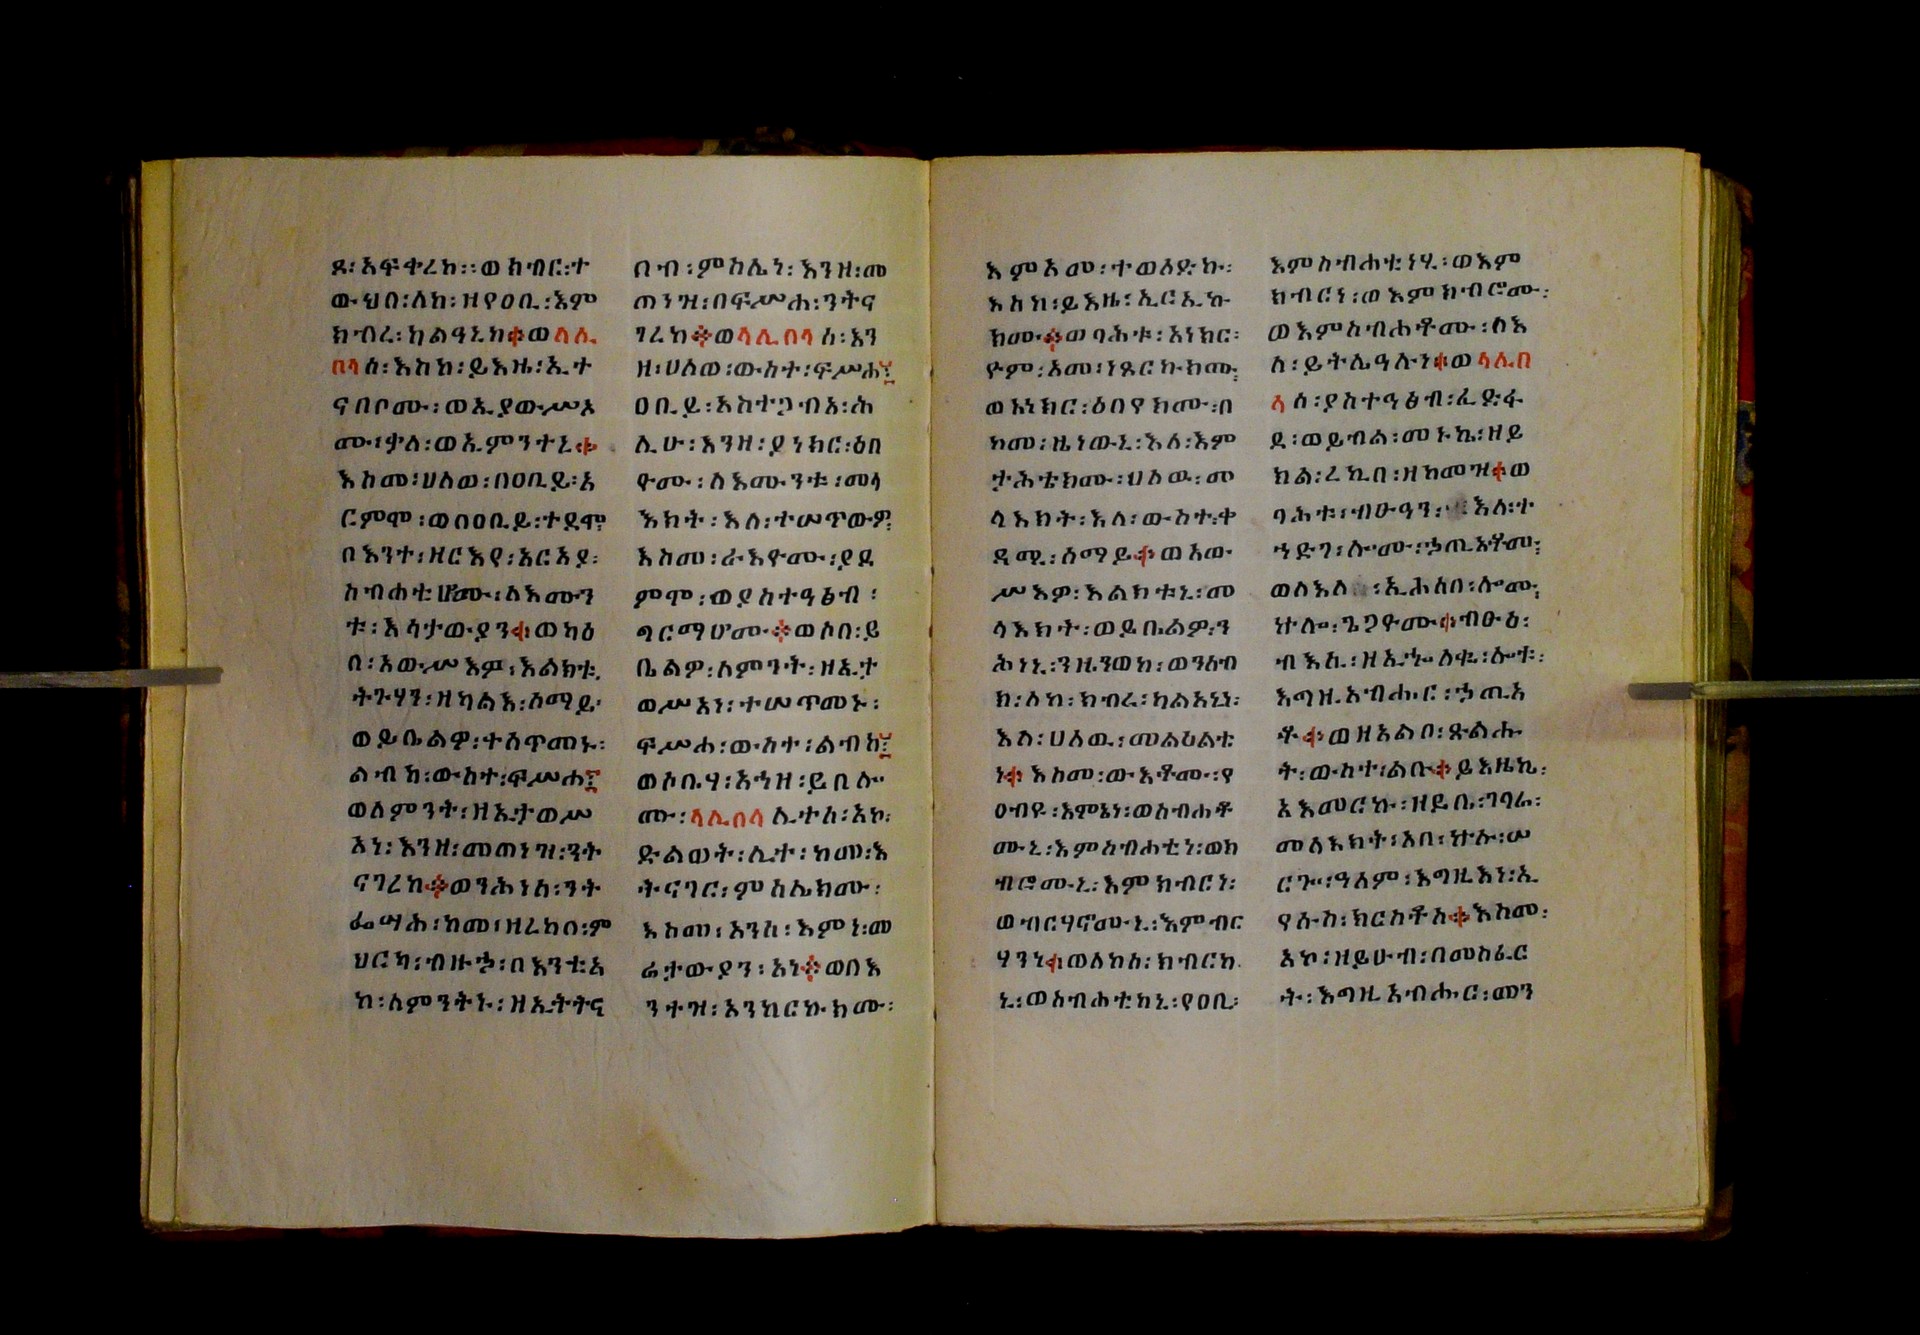 ደ፡አፍቀረከ፡፡ወክብር፡ተ
ውህበ፡ለከ፡ዘየዐቢ፡እም
ክብረ፡ከልዓኒከ፨ወሰሲ
በላስ፡እስከ፡ይእዜ፡ኢተ
ናበቦሙ፡ወኢያውሥኦ
ሙ፡ቃለ፡ወኢምንተኒ፨
እስመ፡ሀለወ፡በዐቢይ፡አ
ርምሞ፡ወበዐቢይ፡ተደሞ፡
በእንተ፡ዘርእየ፡አርአያ፡
ስብሐቲሆሙ፡ለእሙን
ቱ፡እሳታውያን፨ወካዕ
በ፡አውሥእዎ፡እልክቱ
ትጉሃን፡ዘካልእ፡ሰማይ፡
ወይቤልዎ፡ተሰጥመኑ፡
ልብከ፡ውስተ፡ፍሥሐ፤
ወለምንት፡ዘኢታወሥ
አነ፡እንዘ፡መጠነዝ፡ንት
ናገረከ፨ወንሕነሰ፡ንት
ፌሣሕ፡ከመ፡ዘረከበ፡ም
ህርካ፡ብዙኃ፡በእንቲአ
ከ፡ለምንትኑ፡ዘኢትትና
በብ፡ምስሌነ፡እንዘ፡መ
ጠነዝ፡በፍሥሐ፡ንትና
ገረከ፨ወላሊበላሰ፡እን
ዘ፡ሀለወ፡ውስተ፡ፍሥሐ፤
ዐቢይ፡አስተጋብአ፡ሕ
ሊሁ፡እንዘ፡ያነክር፡ዕበ
ዮሙ፡ለእሙንቱ፡መላ
እክት፡እለ፡ተሠጥውዎ፡
እስመ፡ራእዮሙ፡ያደ
ምሞ፡ወያስተዓፅብ፡
ግርማሆሙ፨ወሶበ፡ይ
ቤልዎ፡ለምንት፡ዘኢታ
ወሥአነ፡ተሠጥመኑ፡
ፍሥሐ፡ውስተ፡ልብከ፤
ወሶቤሃ፡አኀዘ፡ይበሎ
ሙ፡ላሊበላ ሊተሰ፡አኮ፡
ድልወት፡ሊተ፡ከመ፡እ
ትናገር፡ምስሌክሙ፡
እስመ፡አንሰ፡እምነ፡መ
ሬታውያን፡አነ፨ወበእ
ንተዝ፡አንከርኩክሙ፡
እምአመ፡ተወለድኩ፡
እስከ፡ይእዜ፡ኢርኢኩ
ክሙ፨ወባሕቱ፡አነክር፡
ዮም፡አመ፡ነጸርኩክሙ፡
ወአነክር፡ዕበየክሙ፡በ
ከመ፡ዜነውኒ፡እለ፡እም
ታሕቴክሙ፡ህለዉ፡መ
ላእክት፡እለ፡ውስተ፡ቀ
ዳሚ፡ሰማይ፨ወአው
ሥእዎ፡እልክቱኒ፡መ
ላእክት፡ወይቤልዎ፡ን
ሕነኒ፡ንዜንወከ፡ወንሰብ
ክ፡ለከ፡ክብረ፡ካልአኒነ፡
እለ፡ሀለዉ፡መልዕልቴ
ነ፨እስመ፡ውእቶሙ፡የ
ዐብዩ፡እምኔነ፡ወስብሐቶ
ሙኒ፡እምስብሐቲነ፡ወክ
ብሮሙኒ፡እምክብርነ፡
ወብርሃኖሙኒ፡እምብር
ሃንነ፨ወለከሰ፡ክብርከ
ኒ፡ወስብሐቲከኒ፡የዐቢ፡
እምስብሐቲነሂ፡ወእም
ክብርነ፡ወእምክብሮሙ፡
ወእምስብሐቶሙ፡ለእ
ለ፡ይትሌዓሉነ፨ወላሊበ
ላሰ፡ያስተዓፅብ፡ፈድፋ
ደ፡ወይብል፡መኑኬ፡ዘይ
ክል፡ረኪበ፡ዘከመዝ፨ወ
ባሕቱ፡ብፁዓን፡እለ፡ተ
ኀድገ፡ሎሙ፡ኃጢአቶሙ፡
ወለእለ፡ኢሐሰበ፡ሎሙ፡
ኵሎ፡ጌጋዮሙ፨ብፁዕ፡
ብእሲ፡ዘኢኈለቈ፡ሎቱ፡
እግዚአብሔር፡ኃጢአ
ቶ፨ወዘአልቦ፡ጽልሑ
ት፡ውስተ፡ልቡ፨ይእዜኬ፡
አእመርኩ፡ዘይቤ፡ገባሬ፡
መለእክት፡አበ፡ኵሉ፡ሠ
ርጐ፡ዓለም፡እግዚእነ፡ኢ
የሱስ፡ክርስቶስ፨እስመ፡
አኮ፡ዘይሁብ፡በመስፈር
ት፡እግዚአብሔር፡መን